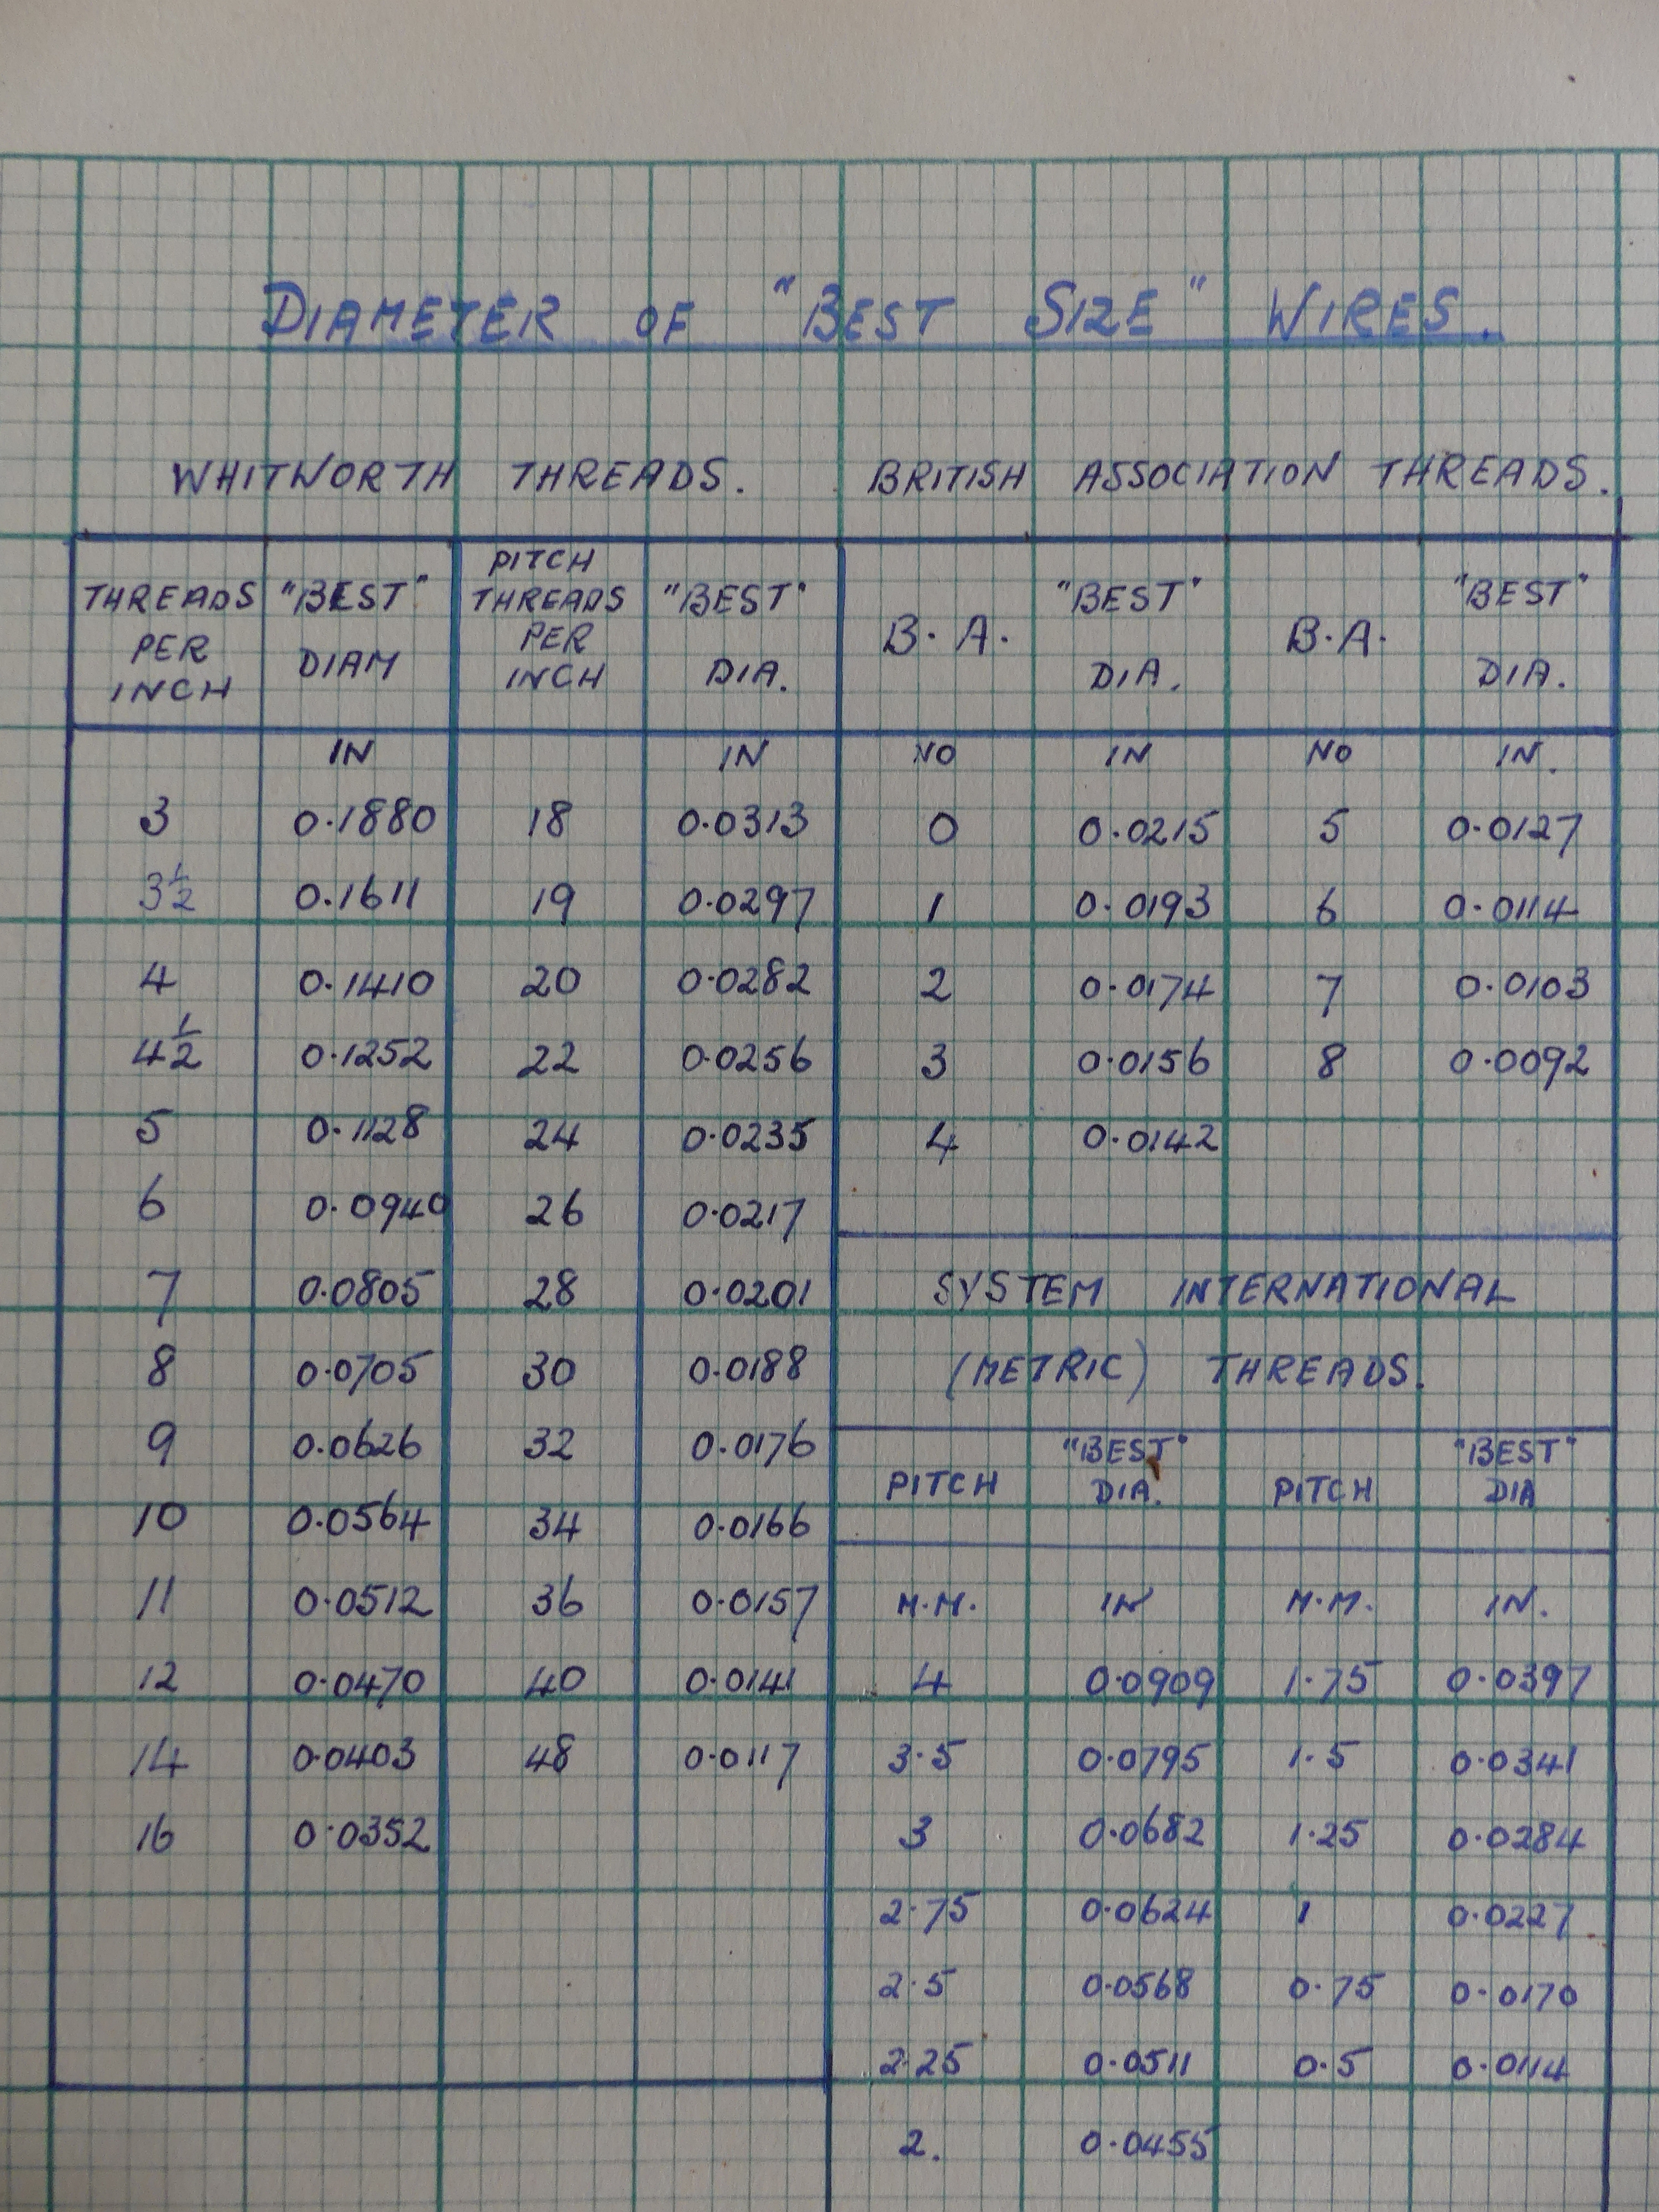 DIAMETER OF "BEST SIZE" WIRES.
WHITWORTH THREADS. BRITISH ASSOCIATION THREADS.
THREADS PER INCH "BEST" DIAM PITCH THREADS PER INCH "BEST" DIA. B.A. "BEST" DIA. B.A. "BEST" DIA.
IN IN NO IN NO IN.
3 0.1880 18 0.0313 0 0.0215 5 0.0127
3½ 0.1611 19 0.0297 1 0.0193 6 0.0114
4 0.1410 20 0.0282 2 0.0174 7 0.0103
4½ 0.1252 22 0.0256 3 0.0156 8 0.0092
5 0.1128 24 0.0235 4 0.0142
6 0.0940 26 0.0217
7 0.0805 28 0.0201 SYSTEM INTERNATIONAL
8 0.0705 30 0.0188 (METRIC) THREADS.
9 0.0626 32 0.0176 PITCH "BEST" DIA. PITCH "BEST" DIA
10 0.0564 34 0.0166
11 0.0512 36 0.0157 M.M. IN M.M. IN.
12 0.0470 40 0.0141 4 0.0909 1.75 0.0397
14 0.0403 48 0.0117 3.5 0.0795 1.5 0.0341
16 0.0352 3 0.0682 1.25 0.0284
2.75 0.0624 1 0.0227
2.5 0.0568 0.75 0.0170
2.25 0.0511 0.5 0.0114
2. 0.0455